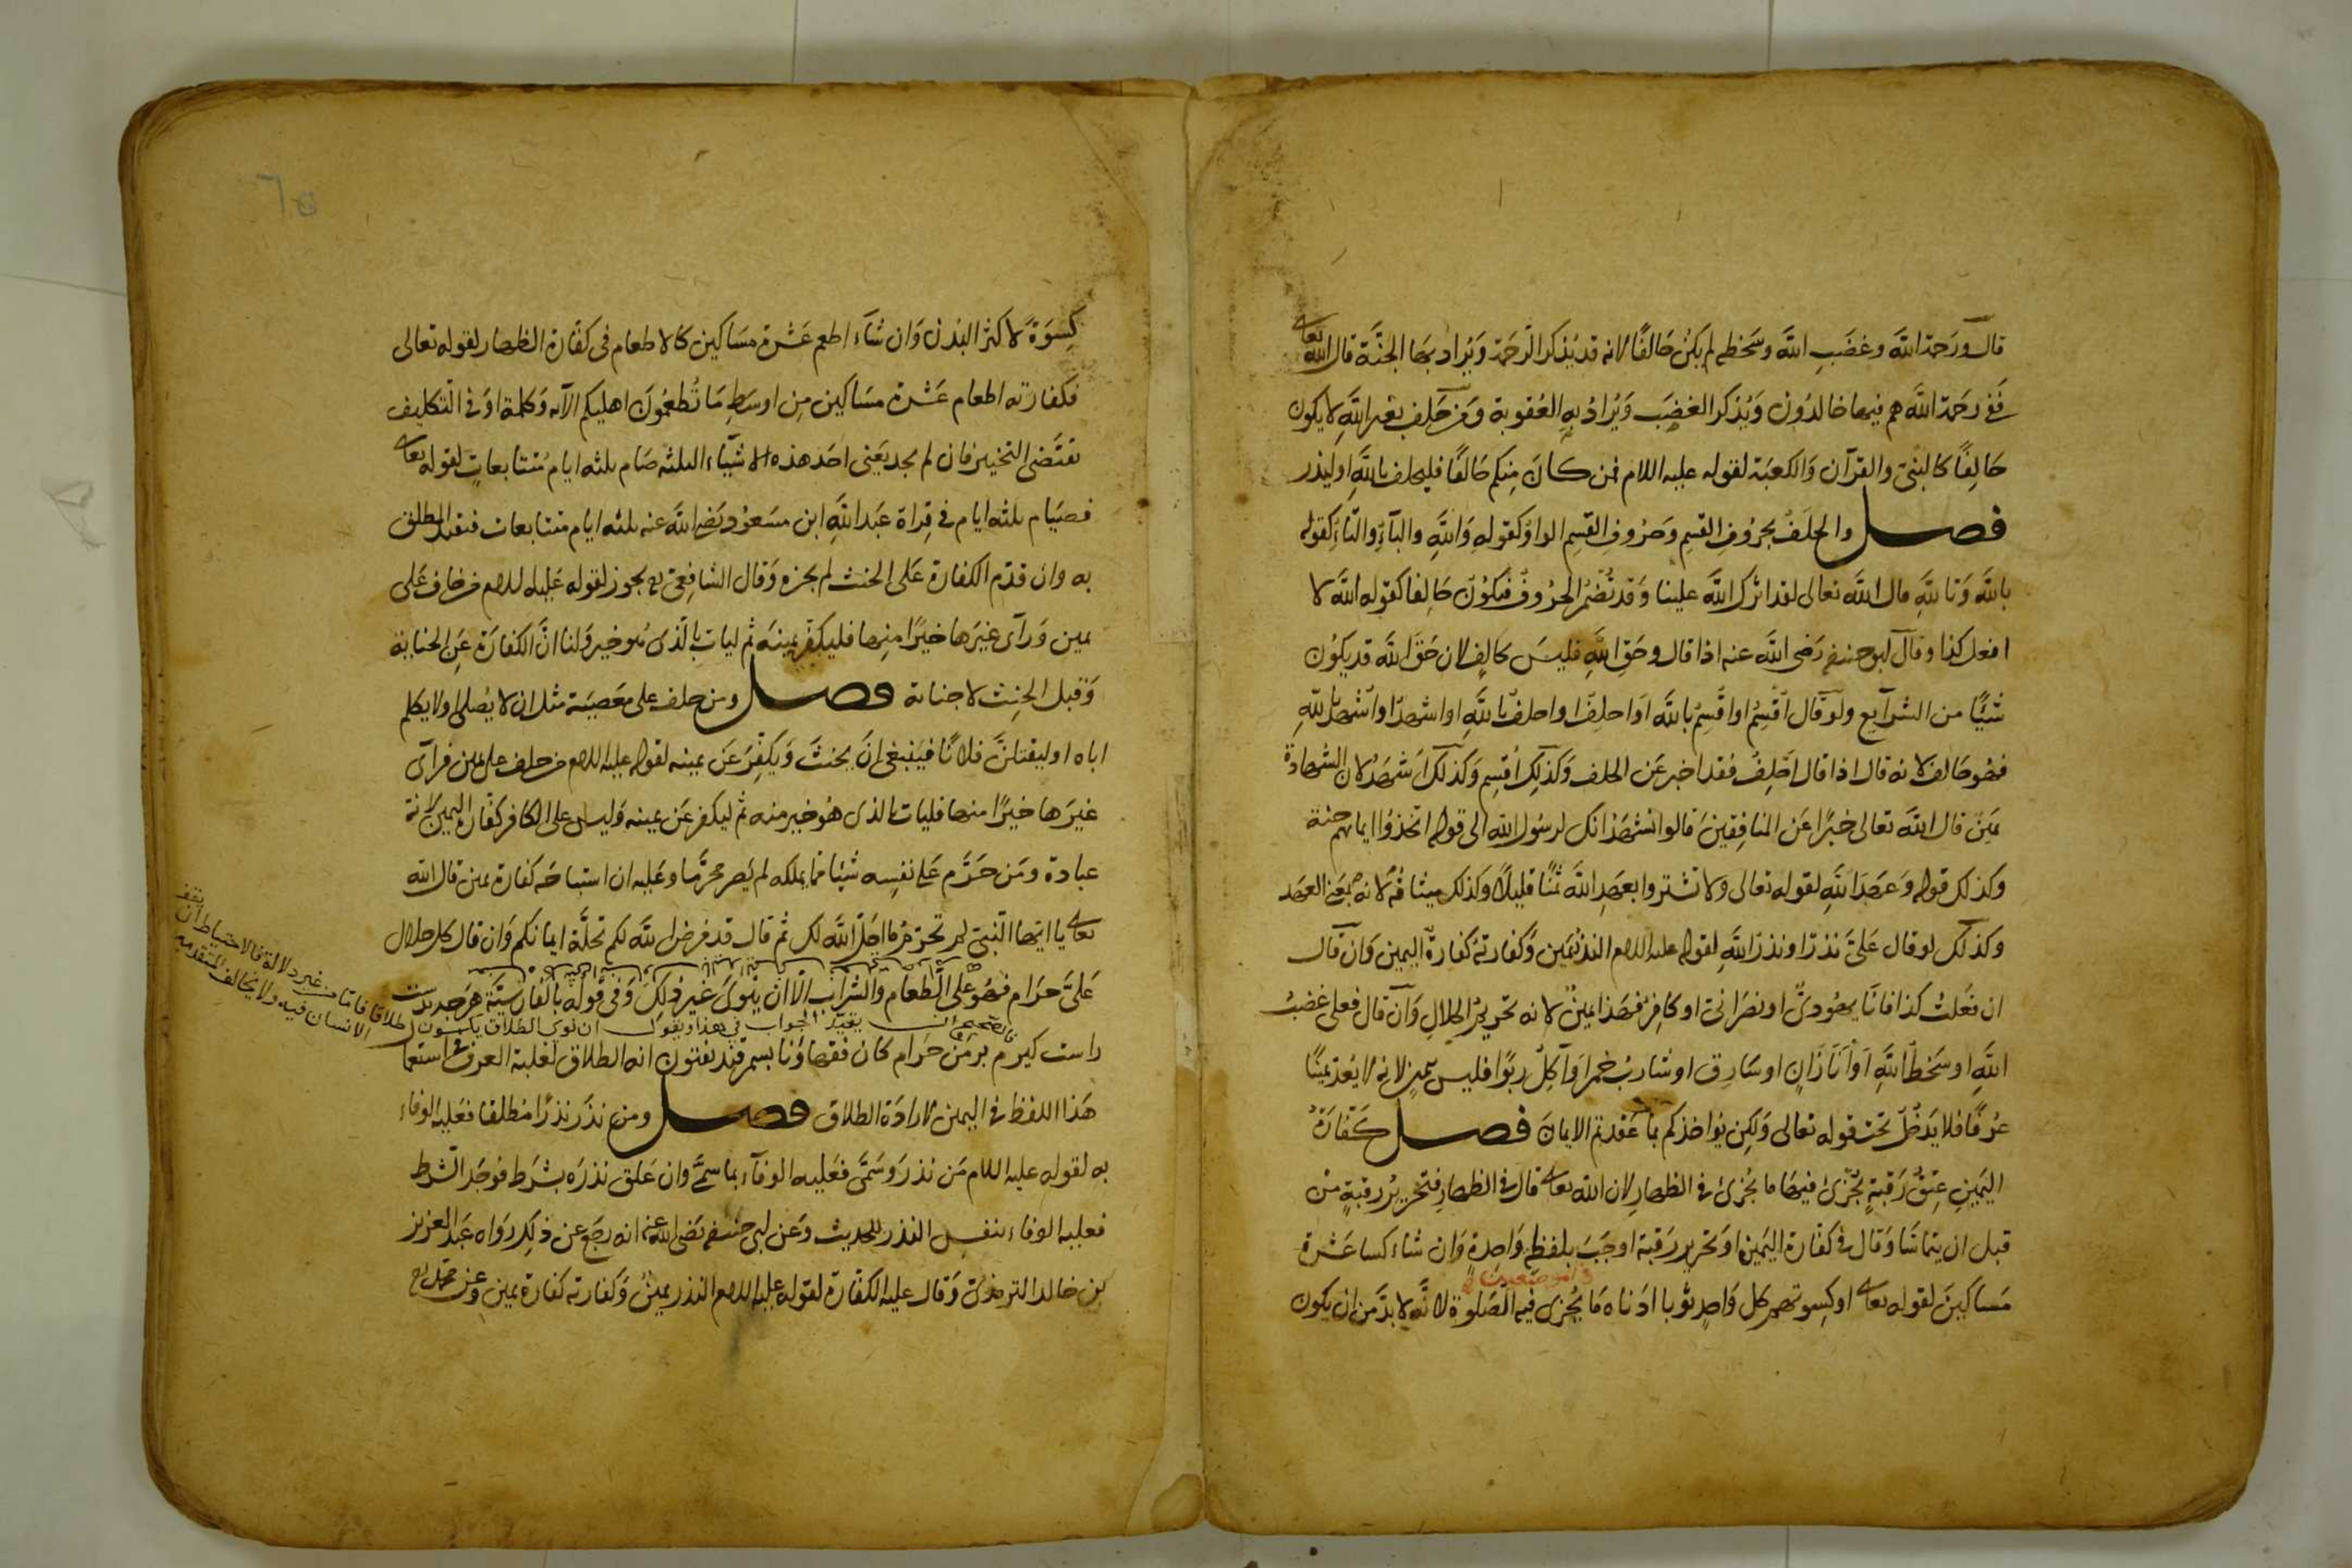 قال ورحمة الله وغضب الله وسخطه لم يكن حالفا لانه قد يذكر الرحمة ويراد بها الجنة قال الله تعالى
ففى رحمة الله هم فيها خالدون ويذكر الغضب ويراد به العقوبة ومن حلف بغير الله لا يكون
حالفا كالنبى والقرآن والكعبة لقوله عليه اللام فمن كان منكم حالفا فليحلف بالله او ليذر
فصل والحلف بحروف القسم وحروف القسم الواو كقوله والله والبآء والتآء كقوله
بالله وتالله قال الله تعالى لقد اثرك الله علينا وقد تضمر الحروف فيكون حالفا كقوله الله لا
افعل كذا وقال ابو حنيفة رضى الله عنه اذا قال وحق الله فليس بحالف لان حق الله قد يكون
شيئا من الشرآيع ولو قال اقسم او اقسم بالله او احلف او احلف بالله او اشهد او اشهد بالله
فهو حالف لانه قال اذا قال احلف فقد اخبر عن الحلف وكذلك اقسم وكذلك اشهد لان الشهادة
يمين قال الله تعالى خبرا عن المنافقين قالوا نشهد انك لرسول الله الى قوله اتخذوا ايمانهم جنة
وكذلك قوله وعهد الله لقوله تعالى ولا تشتروا بعهد الله ثمنا قليلا وكذلك ميثاقه لانه بمعنى العهد
وكذلك لو قال على نذر او نذر الله لقوله عليه اللام النذر يمين وكفارته كفارة اليمين وان قال
ان فعلت كذا فانا يهودى او نصرانى او كافر فهذا يمين لانه تحريم الحلال وان قال فعلى غضب
الله او سخط الله او انا زان او سارق او شارب خمر او آكل ربوا فليس بيمين لانه لا يعد يمينا
عرفا فلا يدخل تحت قوله تعالى ولكن يؤاخذكم بما عقدتم الايمان فصل كفارة
اليمين عتق رقبة يجزئ فيها ما يجزئ فى الظهار لان الله تعالى قال فى الظهار فتحرير رقبة من
قبل ان يتماسا وقال فى كفارة اليمين او تحرير رقبة اوجب بلفظة واحدة وان شاء كسا عشرة
مساكين لقوله تعالى او كسوتهم كل واحد ثوبا ادناه ما يجزى فيه الصلوة لانه لا بد من ان يكون
كسوة لاكثر البدن وان شآء اطعم عشرة مساكين كالاطعام فى كفارة الظهار لقوله تعالى
فكفارته اطعام عشرة مساكين من اوسط ما تطعمون اهليكم الآية وكلمة او فى التكليف
تقتضى التخيير فان لم يجد يعنى احد هذه الاشيآء الثلثه صام ثلثه ايام متتابعات لقوله تعالى
فصيام ثلثه ايام فى قراة عبد الله ابن مسعود رضى الله عنه ثلثه ايام متتابعات فتقيد المطلق
به وان قدم الكفارة على الحنث لم يجزه وقال الشافعى رح يجوز لقوله عليه اللام من حلف على
يمين ورآى غيرها خيرا منها فليكفر يمينه ثم ليات بالذى هو خير ولنا ان الكفارة عن الجناية
وقبل الحنث لا جناية فصل ومن حلف على معصية مثل ان لا يصلى او لا يكلم
اباه او ليقتلن فلانا فينبغى ان يحنث ويكفر عن يمينه لقوله عليه اللام من حلف على يمين فرآى
غيرها خيرا منها فليات بالذى هو خير منه ثم ليكفر عن يمينه وليس على الكافر كفارة اليمين لانه
عبادة ومن حرم على نفسه شيئا مما يملكه لم يصر محرما وعليه ان استباحه كفارة يمين قال الله
تعالى يا ايها النبى لم تحرم ما احل الله لك ثم قال قد فرض الله لكم تحلة ايمانكم وان قال كل حلال
على حرام فهو على الطعام والشراب الا ان ينوى غير ذلك وفى قوله بالفارسية هرچ بدست
راست كيرم بر من حرام كان فقهاؤنا بسمرقند يفتون انه الطلاق لغلبة العرف فى استعما
هذا اللفظ فى اليمين لارادة الطلاق فصل ومن نذر نذرا مطلقا فعليه الوفاء
به لقوله عليه اللام من نذر وسمى فعليه الوفآء بما سمى وان علق نذره بشرط فوجد الشرط
فعليه الوفاء بنفس النذر للحديث وعن ابى حنيفة رضى الله عنه انه رجع عن ذلك رواه عبد العزيز
بن خالد الترمذى وقال عليه الكفارة لقوله عليه اللام النذر يمين وكفارته كفارة يمين وعن محمد رح
ان نوى الطلاق يكون
طلاقا فاما من غير دلالة فالاحتياط ان يقف
الانسان فيه ولا يخالف المتقدمين